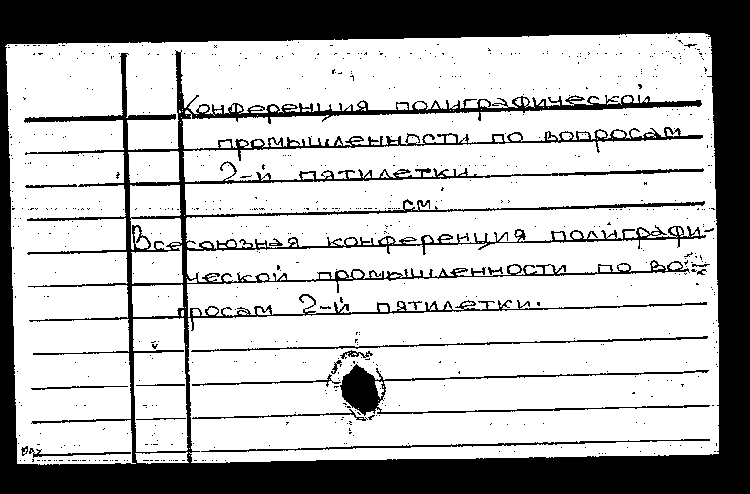 Конференция полиграфической
промышленности по вопросам
2-й пятилетки.
см.
Всесоюзная конференция полиграфи-
ческой промышленности по во-
просам 2-й пятилетки.